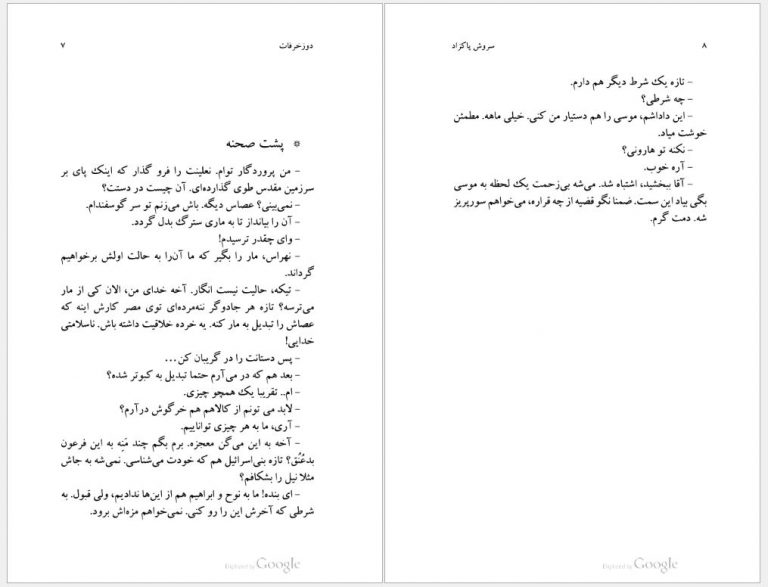 ۷
دوزخرفات
* پشت صحنه
– من پروردگار توام. نعلینت را فرو گذار که اینک پای بر
سرزمین مقدس طوی گذارده‌ای. آن چیست در دستت؟
– نمی‌بینی؟ عصاس دیگه. باش می‌زنم تو سر گوسفندام.
– آن را بیانداز تا به ماری سترگ بدل گردد.
– وای چقدر ترسیدم!
– نهراس، مار را بگیر که ما آن‌را به حالت اولش برخواهیم
گرداند.
– تیکه، حالیت نیست انگار. آخه خدای من، الان کی از مار
می‌ترسه؟ تازه هر جادوگر ننه‌مرده‌ای توی مصر کارش اینه که
عصاش را تبدیل به مار کنه. یه خرده خلاقیت داشته باش. ناسلامتی
خدایی!
– پس دستانت را در گریبان کن...
– بعد هم که در می‌آرم حتما تبدیل به کبوتر شده؟
– ام.. تقریبا یک همچو چیزی.
– لابد می تونم از کالاهم هم خرگوش درآرم؟
– آری، ما به هر چیزی تواناییم.
– آخه به این می‌گن معجزه. برم بگم چند مَنِه به این فرعون
بدعُنُق؟ تازه بنی‌اسرائیل هم که خودت می‌شناسی. نمی‌شه به جاش
مثلا نیل را بشکافم؟
– ای بنده! ما به نوح و ابراهیم هم از این‌ها ندادیم، ولی قبول. به
شرطی که آخرش این را رو کنی. نمی‌خواهم مزه‌اش برود.
Digitized by Google
۸
سروش پاکزاد
– تازه یک شرط دیگر هم دارم.
– چه شرطی؟
– این داداشم، موسی را هم دستیار من کنی. خیلی ماهه. مطمئن
خوشت میاد.
– نکنه تو هارونی؟
– آره خوب.
– آقا ببخشید، اشتباه شد. می‌شه بی‌زحمت یک لحظه به موسی
بگی بیاد این سمت. ضمنا نگو قضیه از چه قراره، می‌خواهم سورپریز
شه. دمت گرم.
Digitized by Google